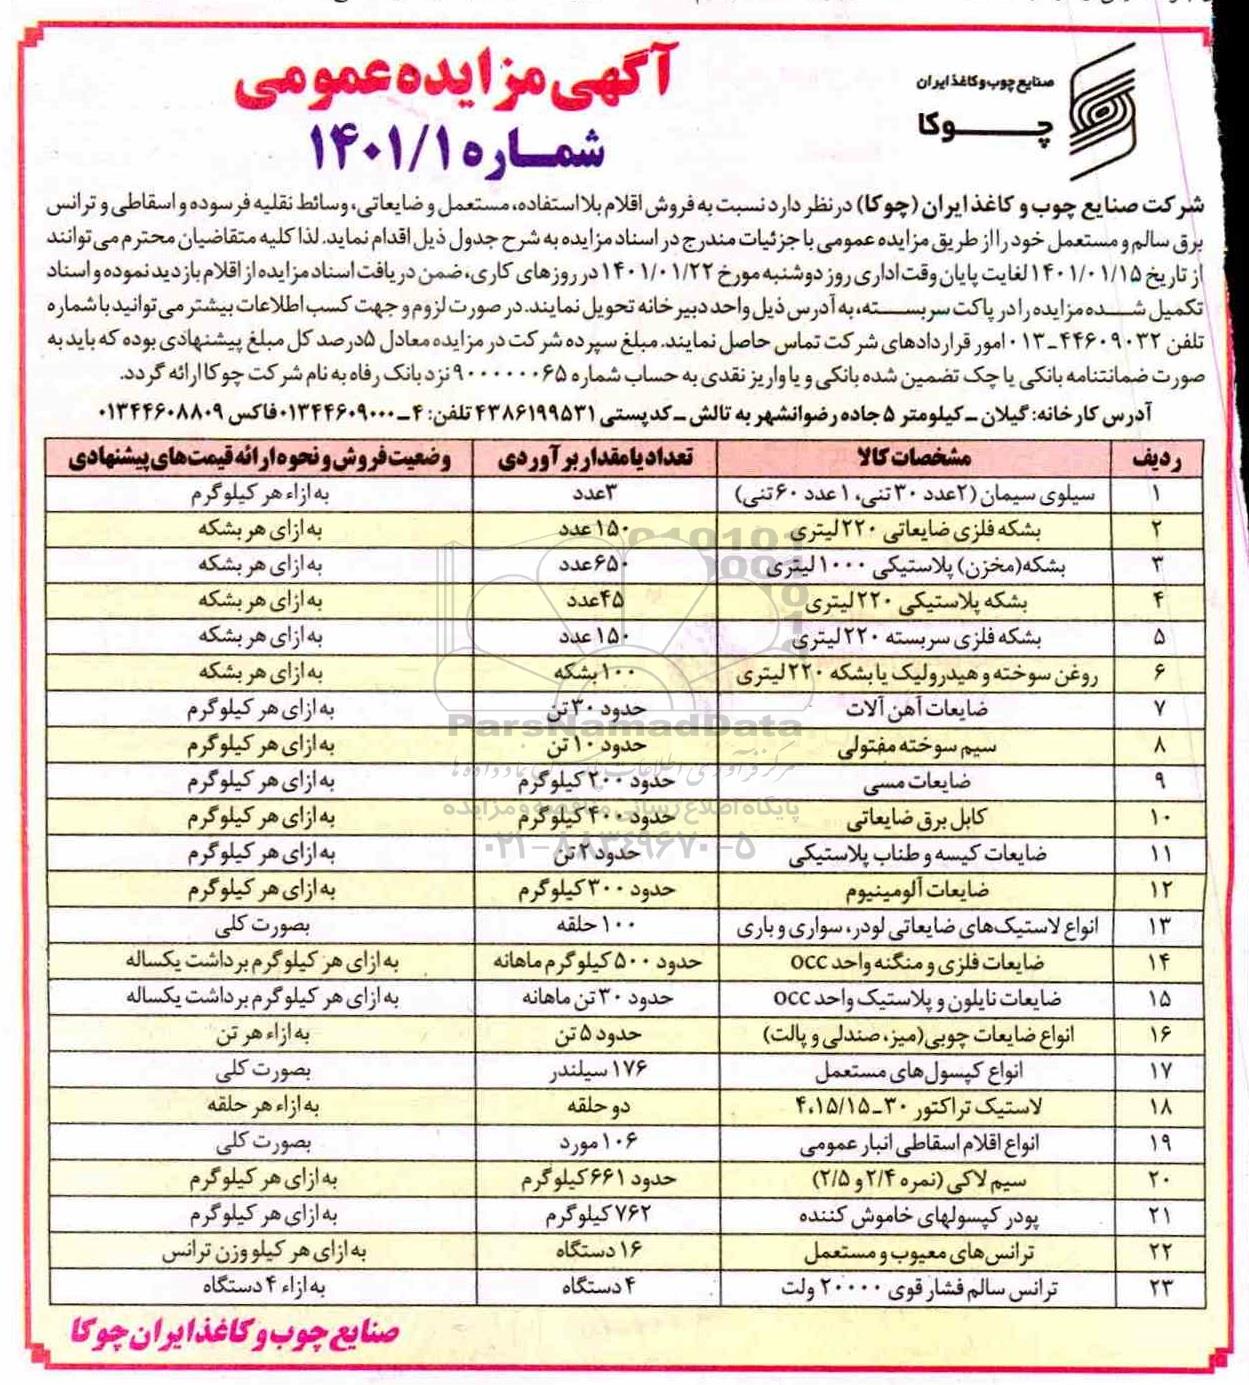 صنایع چوب و کاغذ ایران
چوکا
آگهی مزایده عمومی
شماره ۱۴۰۱/۱
شرکت صنایع چوب و کاغذ ایران (چوکا) در نظر دارد نسبت به فروش اقلام بلااستفاده، مستعمل و ضایعاتی، وسائط نقلیه فرسوده و اسقاطی و ترانس
برق سالم و مستعمل خود را از طریق مزایده عمومی با جزئیات مندرج در اسناد مزایده به شرح جدول ذیل اقدام نماید. لذا کلیه متقاضیان محترم می توانند
از تاریخ ۱۴۰۱/۰۱/۱۵ لغایت پایان وقت اداری روز دوشنبه مورخ ۱۴۰۱/۰۱/۲۲ در روزهای کاری، ضمن دریافت اسناد مزایده از اقلام بازدید نموده و اسناد
تکمیل شده مزایده را در پاکت سربسته، به آدرس ذیل واحد دبیرخانه تحویل نمایند. در صورت لزوم و جهت کسب اطلاعات بیشتر می توانید با شماره
تلفن ۴۴۶۰۹۰۳۲-۰۱۳ امور قراردادهای شرکت تماس حاصل نمایند. مبلغ سپرده شرکت در مزایده معادل ۵درصد کل مبلغ پیشنهادی بوده که باید به
صورت ضمانتنامه بانکی یا چک تضمین شده بانکی و یا واریز نقدی به حساب شماره ۹۰۰۰۰۰۰۶۵ نزد بانک رفاه به نام شرکت چوکا ارائه گردد.
آدرس کارخانه: گیلان - کیلومتر ۵ جاده رضوانشهر به تالش - کدپستی ۴۳۸۶۱۹۹۵۳۱ تلفن: ۴-۰۱۳۴۴۶۰۹۰۰۰ فاکس ۰۱۳۴۴۶۰۸۸۰۹
ردیف مشخصات کالا تعداد یا مقدار برآوردی وضعیت فروش و نحوه ارائه قیمت های پیشنهادی
۱ سیلوی سیمان (۲عدد ۳۰تنی، ۱عدد ۶۰تنی) ۳عدد به ازاء هر کیلوگرم
۲ بشکه فلزی ضایعاتی ۲۲۰لیتری ۱۵۰عدد به ازای هر بشکه
۳ بشکه(مخزن) پلاستیکی ۱۰۰۰لیتری ۶۵۰عدد به ازای هر بشکه
۴ بشکه پلاستیکی ۲۲۰لیتری ۴۵عدد به ازای هر بشکه
۵ بشکه فلزی سربسته ۲۲۰لیتری ۱۵۰عدد به ازای هر بشکه
۶ روغن سوخته و هیدرولیک یا بشکه ۲۲۰لیتری ۱۰۰بشکه به ازای هر بشکه
۷ ضایعات آهن آلات حدود ۳۰تن به ازای هر کیلوگرم
۸ سیم سوخته مفتولی حدود ۱۰تن به ازای هر کیلوگرم
۹ ضایعات مسی حدود ۲۰۰کیلوگرم به ازای هر کیلوگرم
۱۰ کابل برق ضایعاتی حدود ۴۰۰کیلوگرم به ازای هر کیلوگرم
۱۱ ضایعات کیسه و طناب پلاستیکی حدود ۲تن به ازای هر کیلوگرم
۱۲ ضایعات آلومینیوم حدود ۳۰۰کیلوگرم به ازای هر کیلوگرم
۱۳ انواع لاستیک‌های ضایعاتی لودر، سواری و باری ۱۰۰حلقه بصورت کلی
۱۴ ضایعات فلزی و منگنه واحد OCC حدود ۵۰۰کیلوگرم ماهانه به ازای هر کیلوگرم برداشت یکساله
۱۵ ضایعات نایلون و پلاستیک واحد OCC حدود ۳۰تن ماهانه به ازای هر کیلوگرم برداشت یکساله
۱۶ انواع ضایعات چوبی(میز، صندلی و پالت) حدود ۵تن به ازاء هر تن
۱۷ انواع کپسول‌های مستعمل ۱۷۶سیلندر بصورت کلی
۱۸ لاستیک تراکتور ۳۰-۴،۱۵/۱۵ دو حلقه به ازاء هر حلقه
۱۹ انواع اقلام اسقاطی انبار عمومی ۱۰۶مورد بصورت کلی
۲۰ سیم لاکی (نمره ۲/۴و ۲/۵) حدود ۶۶۱کیلوگرم به ازای هر کیلوگرم
۲۱ پودر کپسولهای خاموش کننده ۷۶۲کیلوگرم به ازای هر کیلوگرم
۲۲ ترانس‌های معیوب و مستعمل ۱۶دستگاه به ازای هر کیلو وزن ترانس
۲۳ ترانس سالم فشار قوی ۲۰۰۰۰ ولت ۴دستگاه به ازاء ۴دستگاه
صنایع چوب و کاغذ ایران چوکا
ParsNamadData
پایگاه اطلاع رسانی مناقصه و مزایده
۰۲۱-۸۸۳۴۹۶۷۰-۵